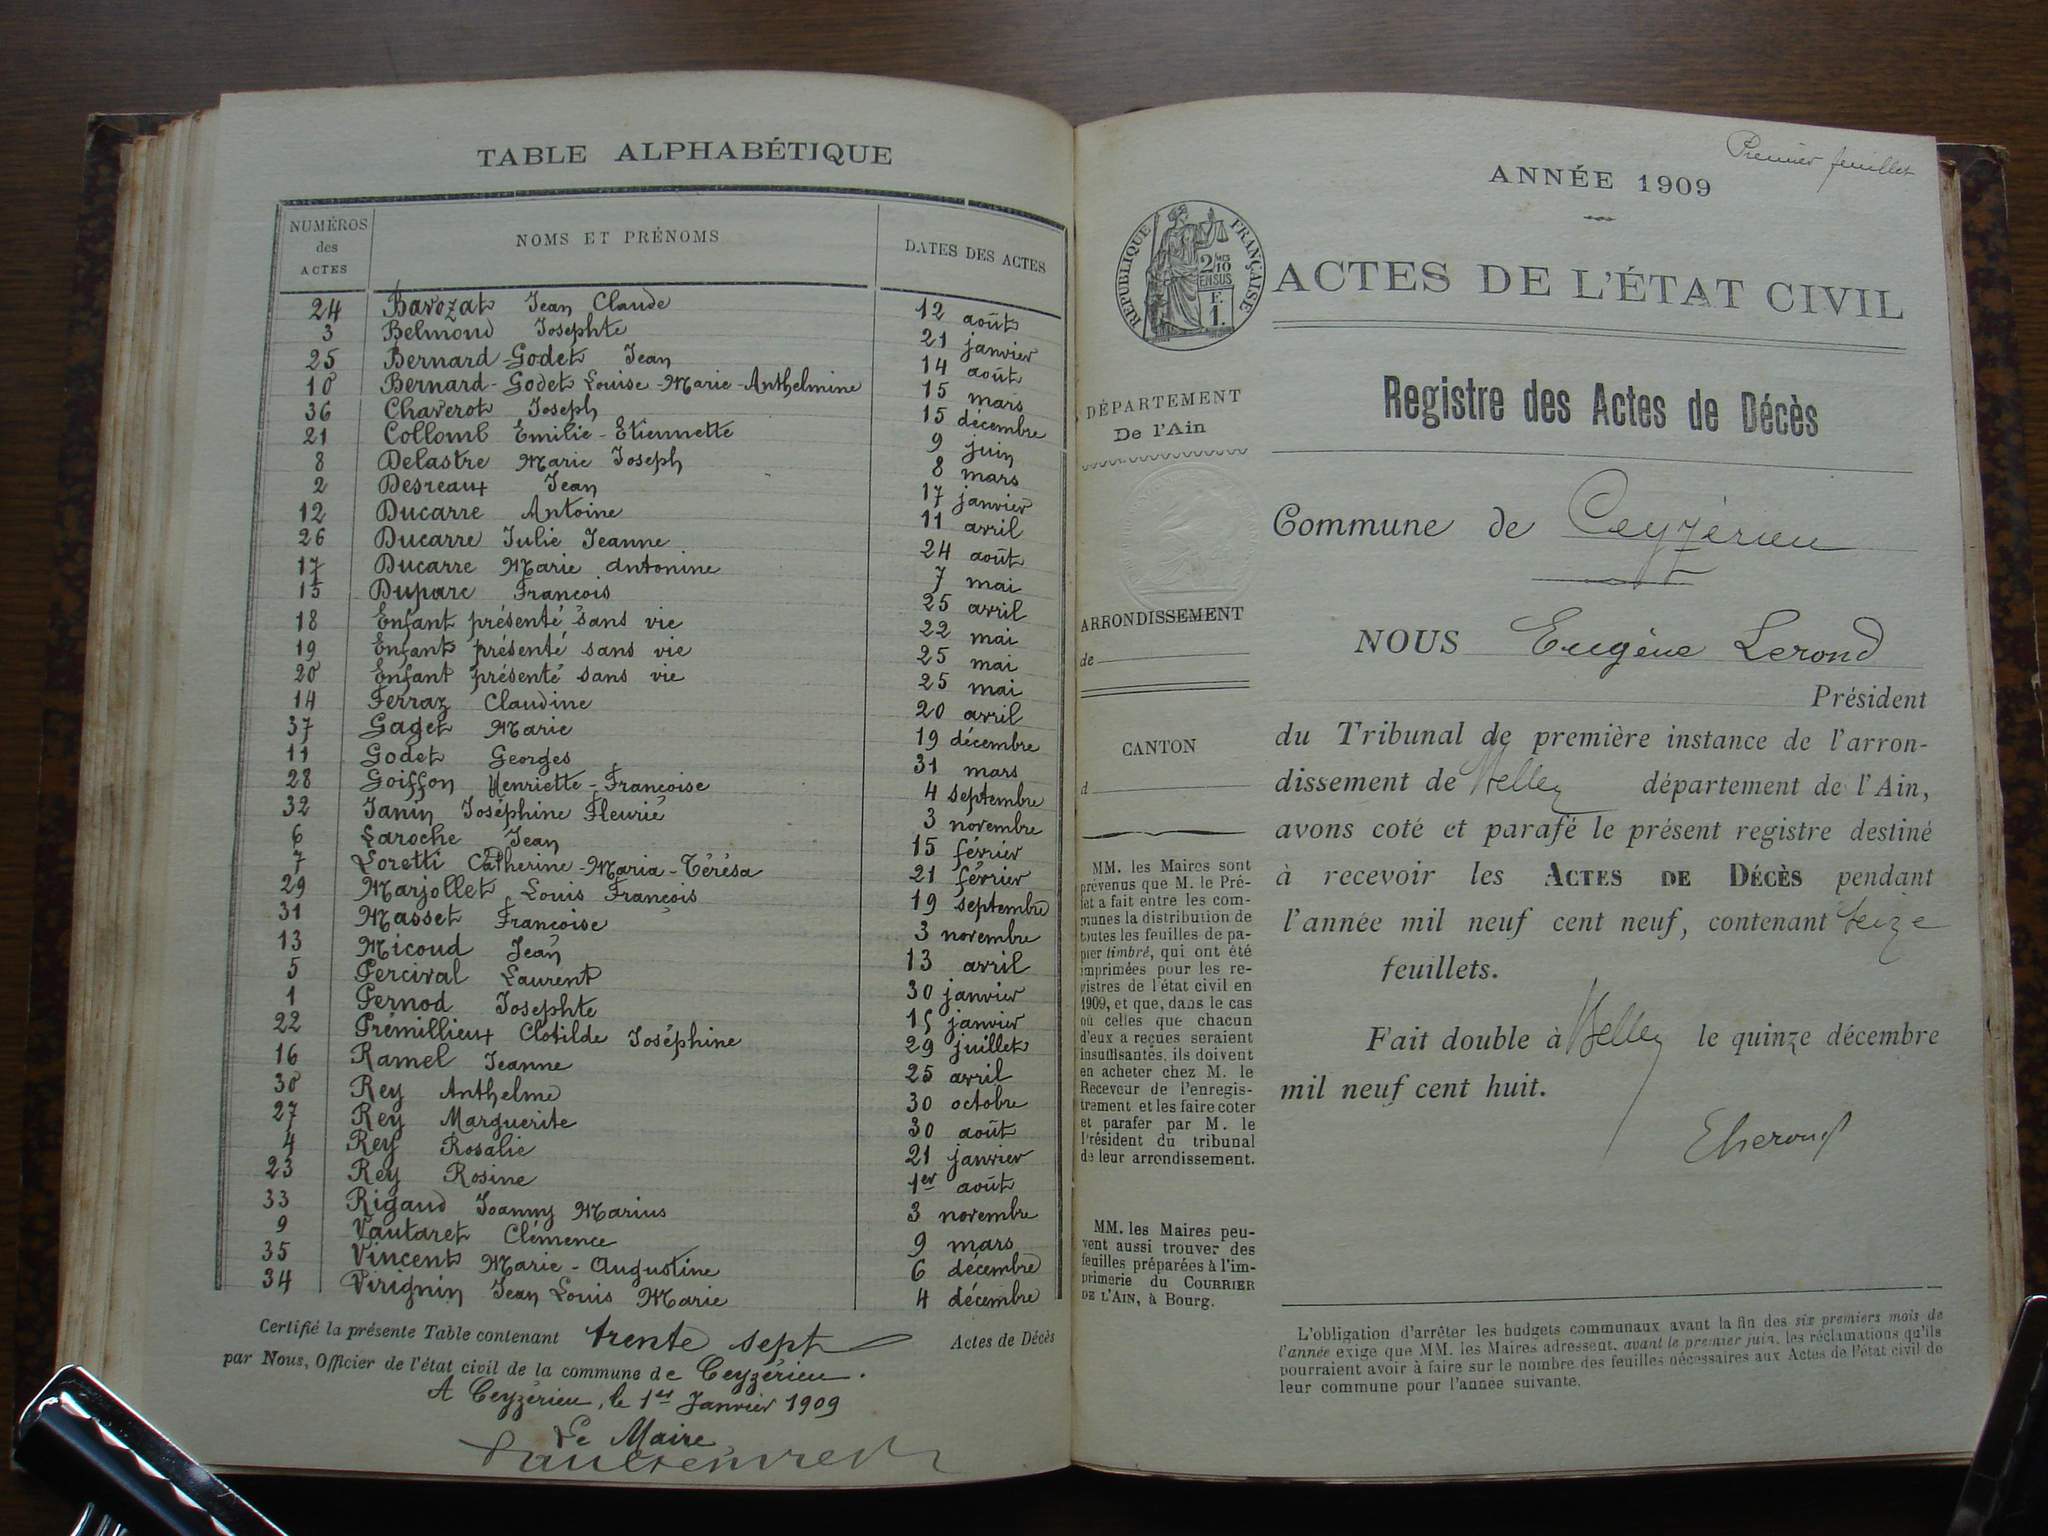 TABLE ALPHABÉTIQUE
NUMÉROS des ACTES NOMS ET PRÉNOMS DATES DES ACTES
24 Bavozat Jean Claude 12 août
3 Belmond Josephte 21 janvier
25 Bernard-Godet Jean 14 août
10 Bernard-Godet Louise-Marie-Anthelmine 15 mars
36 Chaverot Joseph 15 décembre
21 Collomb Emilie-Etiennette 9 juin
8 Delastre Marie Joseph 8 mars
2 Desreaux Jean 17 janvier
12 Ducarre Antoine 11 avril
26 Ducarre Julie Jeanne 24 août
17 Ducarre Marie Antonine 7 mai
15 Duparc François 25 avril
18 Enfant présenté sans vie 22 mai
19 Enfant présenté sans vie 25 mai
20 Enfant présenté sans vie 25 mai
14 Ferraz Claudine 20 avril
37 Gaget Marie 19 décembre
11 Godet Georges 31 mars
28 Goiffon Henriette-Françoise 4 septembre
32 Janin Joséphine Fleurie 3 novembre
6 Laroche Jean 15 février
7 Loretti Catherine-Maria-Térésa 21 février
29 Marjollet Louis François 19 septembre
31 Masset Françoise 3 novembre
13 Micoud Jean 13 avril
5 Percival Laurent 30 janvier
1 Pernod Josephte 15 janvier
22 Prémillieux Clotilde Joséphine 29 juillet
16 Ramel Jeanne 25 avril
30 Rey Anthelme 30 octobre
27 Rey Marguerite 30 août
4 Rey Rosalie 21 janvier
23 Rey Rosine 1er août
33 Rigaud Joanny Marius 3 novembre
9 Vautaret Clémence 9 mars
35 Vincent Marie-Augustine 6 décembre
34 Virignin Jean Louis Marie 4 décembre
Certifié la présente Table contenant trente sept Actes de Décès
par Nous, Officier de l'état civil de la commune de Ceyzérieu.
A Ceyzérieu, le 1er Janvier 1909
Le Maire
Premier feuillet
ANNÉE 1909
RÉPUBLIQUE FRANÇAISE
2/10 EN SUS
F.
1.
ACTES DE L'ÉTAT CIVIL
Registre des Actes de Décès
DÉPARTEMENT
De l'Ain
ARRONDISSEMENT
de
CANTON
d
MM. les Maires sont
prévenus que M. le Pré-
fet a fait entre les com-
munes la distribution de
toutes les feuilles de pa-
pier timbré, qui ont été
imprimées pour les re-
gistres de l'état civil en
1909, et que, dans le cas
où celles que chacun
d'eux a reçues seraient
insuffisantes, ils doivent
en acheter chez M. le
Receveur de l'enregis-
trement et les faire coter
et parafer par M. le
Président du tribunal
de leur arrondissement.
MM. les Maires peu-
vent aussi trouver des
feuilles préparées à l'im-
primerie du COURRIER
DE L'AIN, à Bourg.
Commune de Ceyzérieu
NOUS Eugène Lerond
Président
du Tribunal de première instance de l'arron-
dissement de Belley département de l'Ain,
avons coté et parafé le présent registre destiné
à recevoir les ACTES DE DÉCÈS pendant
l'année mil neuf cent neuf, contenant seize
feuillets.
Fait double à Belley le quinze décembre
mil neuf cent huit.
L'obligation d'arrêter les budgets communaux avant la fin des six premiers mois de
l'année exige que MM. les Maires adressent, avant le premier juin, les réclamations qu'ils
pourraient avoir à faire sur le nombre des feuilles nécessaires aux Actes de l'état civil de
leur commune pour l'année suivante.